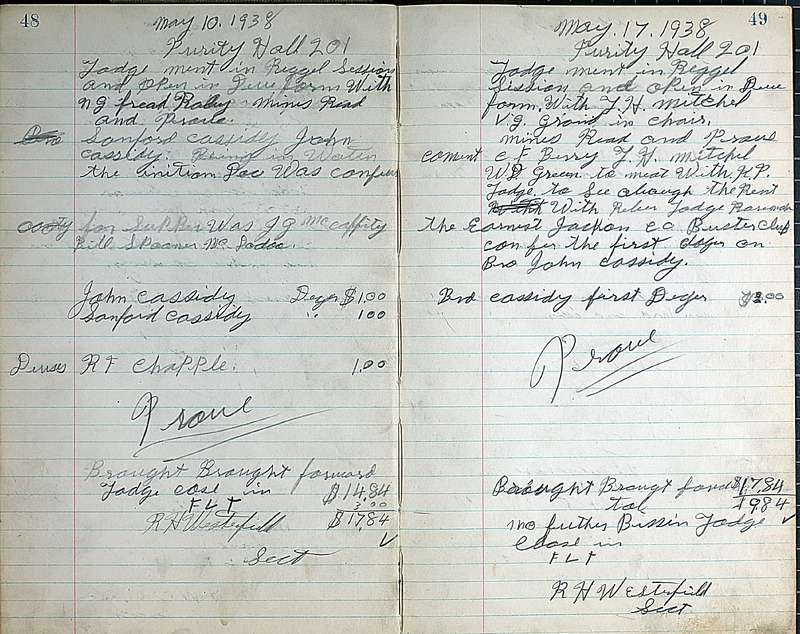 48
May 10. 1938
Purity Hall 201
Lodge ment in Reggel Session
and open in Due form With
N.G. fread Raby Mines Read
and Prove.
Bro Sanford Cassidy John
Cassidy. Being in Waten
the inition Was
for Supper Was J g McCaffity
Bill Spooner Mc
John Cassidy Deger $1.00
Sanford Cassidy " 1.00
Dewses R F Chapple. 1.00
Prove
Brought Brought forward
Lodge cose in $14.84
F L T 3.00
R H Westerfild $17.84
Sect
49
May. 17. 1938
Purity Hall 201
Lodge ment in Reggel
Session and open in Due
form. With J. H. Mitchel
V.g. Grand in chair.
mines Read and Prove
coment C F Berry J. H. Mitchel
W.D Green to meat With K.P.
Lodge to See abaugh the Rent
With Lodge
the Earnest Jackon Co Buster Club
confer the first deger on
Bro John Cassidy.
Bro Cassidy first Deger 2.00
Prove
Brought Brougt $17.84
tol 19.84
no futher Bissin Lodge
Close in
F L T
R H Westerfild
Sect